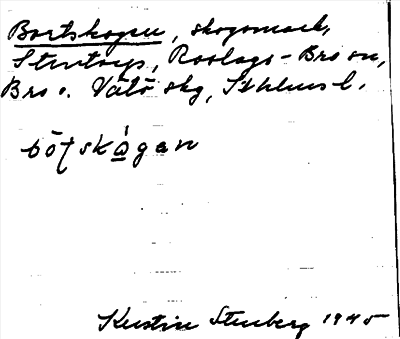 Bortskogen, skogsmark,
Stentorp, Roslags-Bro sn,
Bro o. Vätö skg, Sthlms l.
bo̅ʈskà̱gan
Kerstin Stenberg 1945